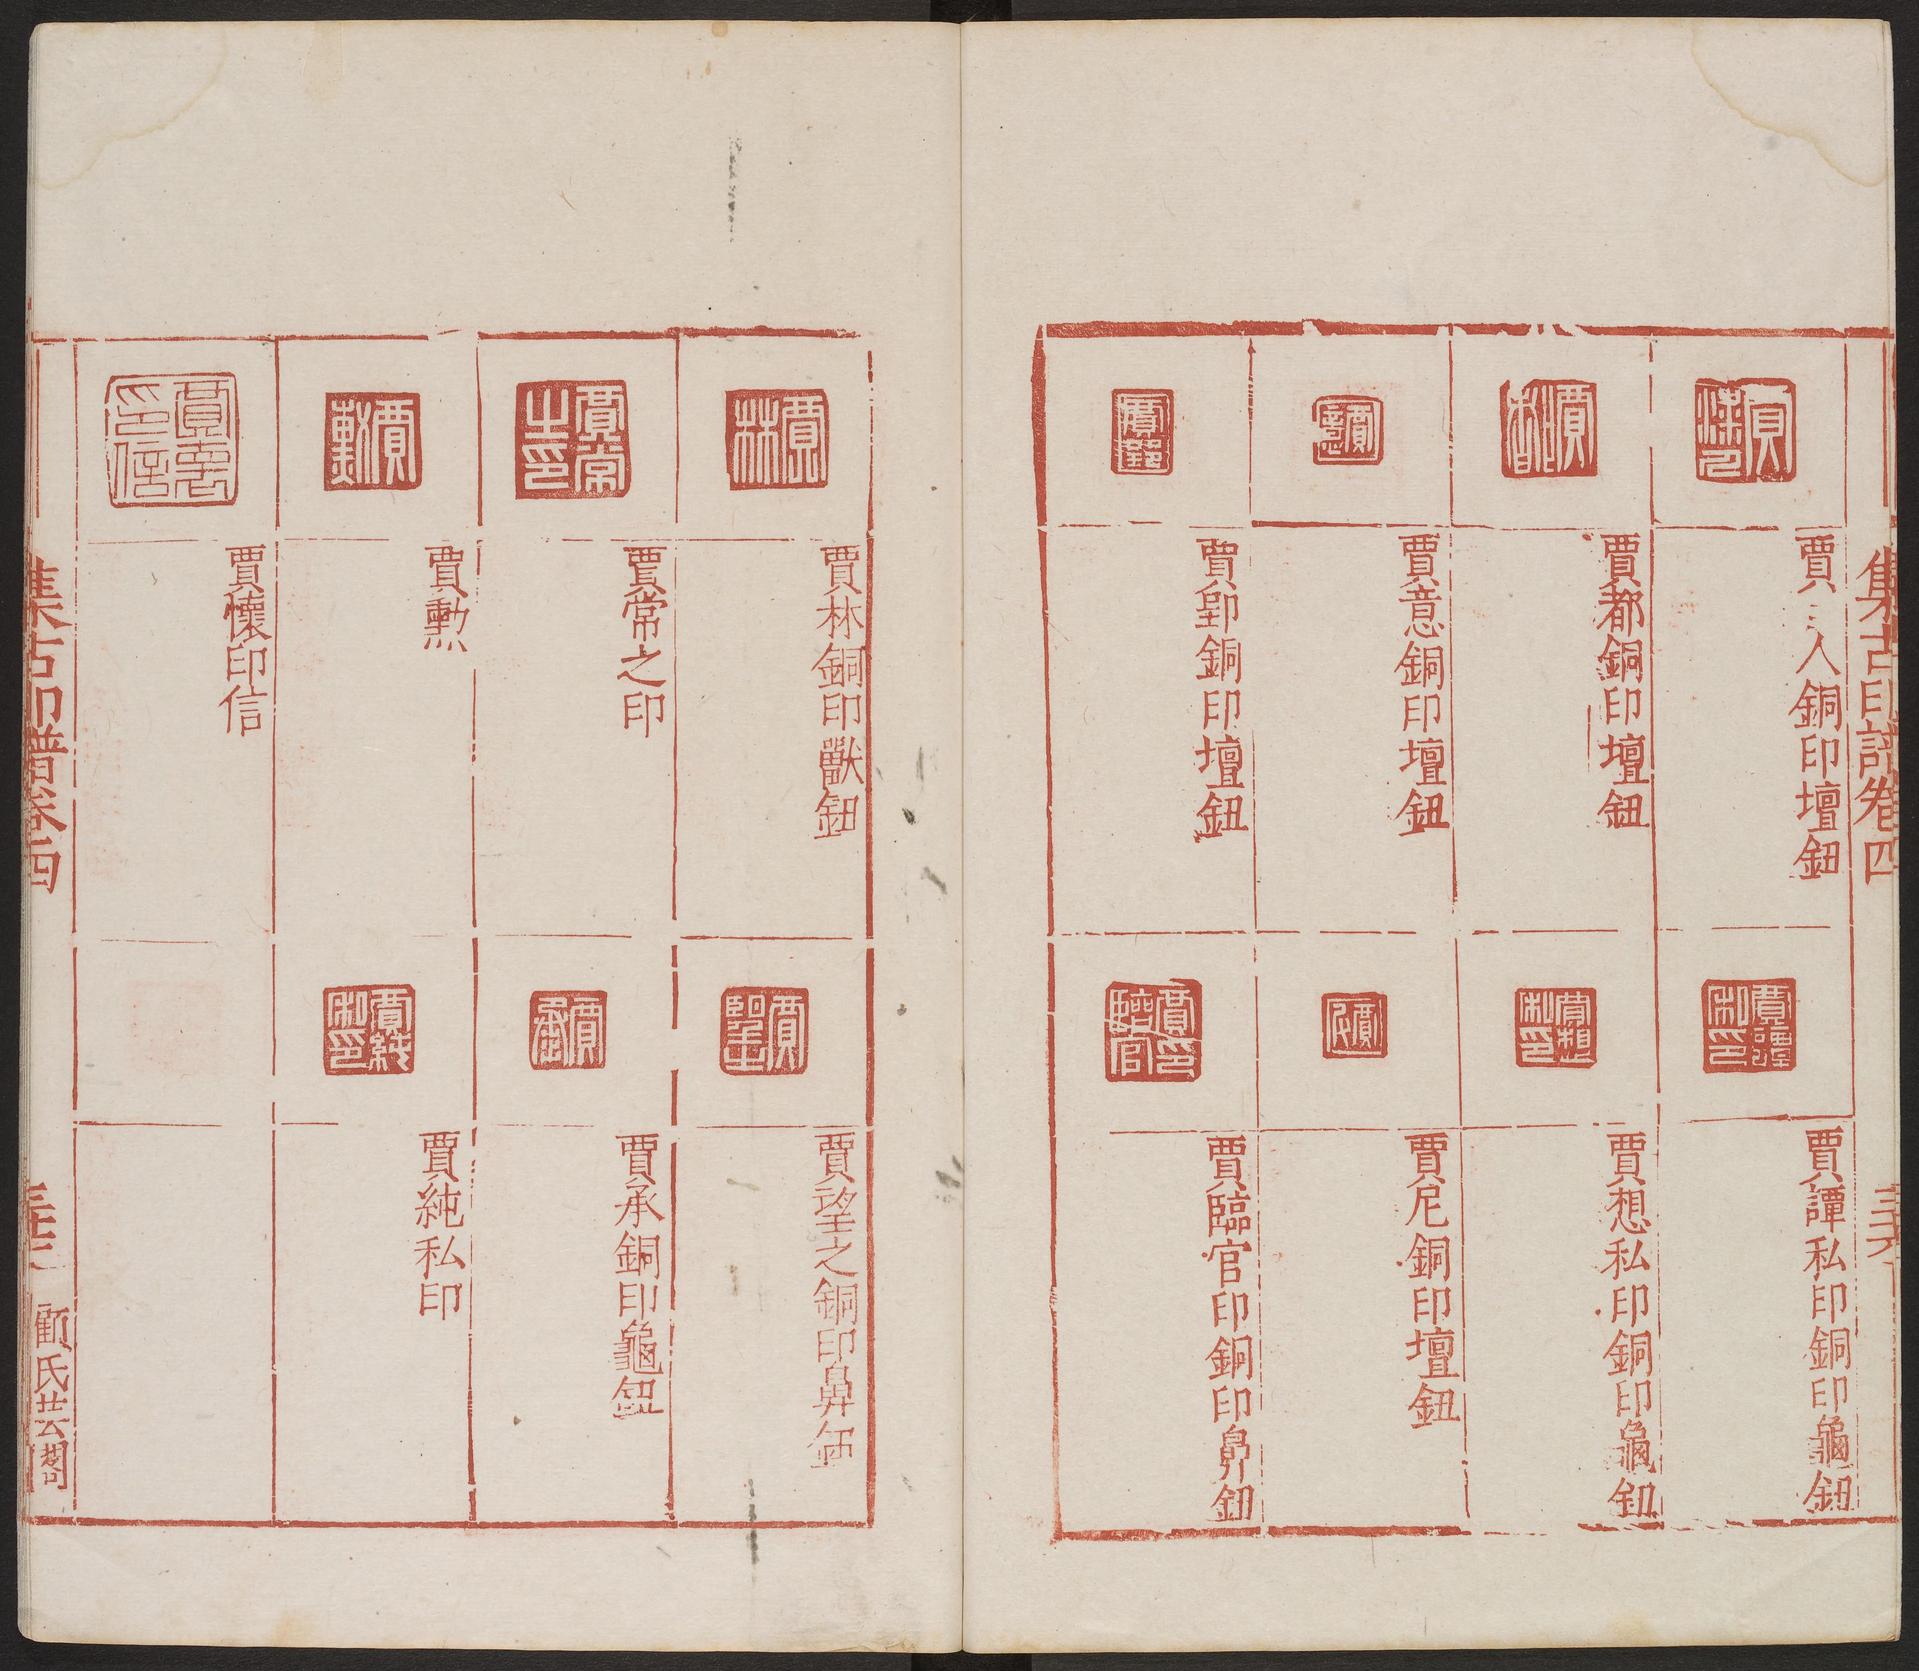 集古印譜卷四
賈 人銅印壇鈕
賈都銅印壇鈕
賈意銅印壇鈕
賈銅印壇鈕
賈譚私印銅印龜鈕
賈想私印銅印龜鈕
賈尼銅印壇鈕
賈臨官印銅印鼻鈕
賈林銅印獸鈕
賈常之印
賈勲
賈懷印信
賈望之銅印鼻鈕
賈承銅印龜鈕
賈純私印
集古印譜卷四
顧氏芸閣